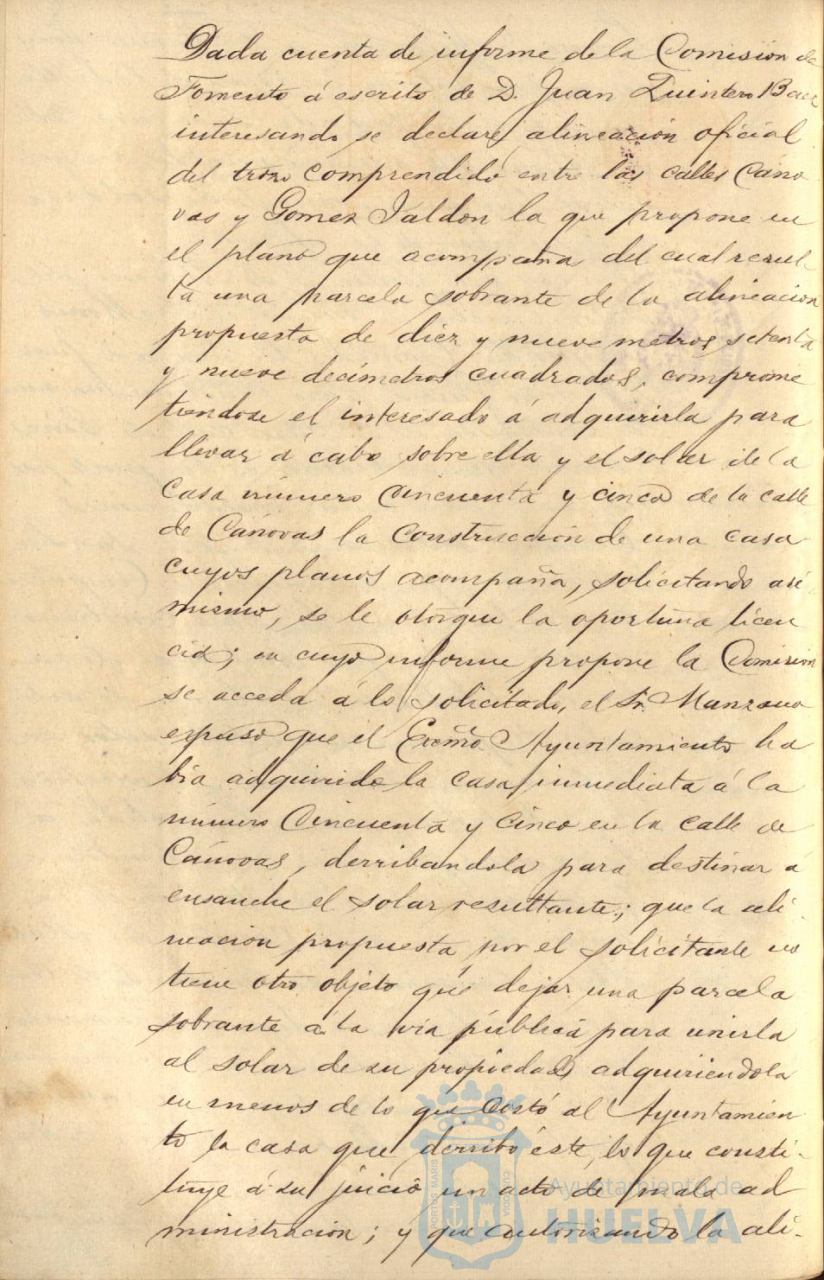 Dada cuenta de informe de la Comisión de
Fomento á escrito de D. Juan Quintero Baez
interesando se declare alineación oficial
del trozo comprendido entre las calles Cáno
vas y Gomez Jaldon la que propone en
el plano que acompaña del cual resul-
ta una parcela sobrante de la alineacion
propuesta de diez y nueve metros setenta
y nueve decímetros cuadrados, comprome
tiendose el interesado á adquirirla para
llevar á cabo sobre ella y el solar de la
casa número Cincuenta y cinco de la calle
de Cánovas la Construcción de una casa
cuyos planos acompaña, solicitando asi
mismo, se le otorgue la oportuna licen
cia; en cuyo informe propone la Comision
se acceda á lo solicitado, el Sr. Manzano
expuso que el Excmo. Ayuntamiento ha
bia adquirido la casa inmediata á la
número Cincuenta y Cinco en la calle de
Cánovas, derribandola para destinar á
ensanche el solar resultante; que la ali-
neacion propuesta por el solicitante no
tiene otro objeto que dejar una parcela
sobrante a la via pública para unirla
al solar de su propiedad adquiriendola
en menos de lo que costó al Ayuntamien-
to la casa que derribó éste, lo que consti-
tuye á su juicio un acto de mala ad
ministracion; y que autorizando la ali-
Ayuntamiento de
HUELVA